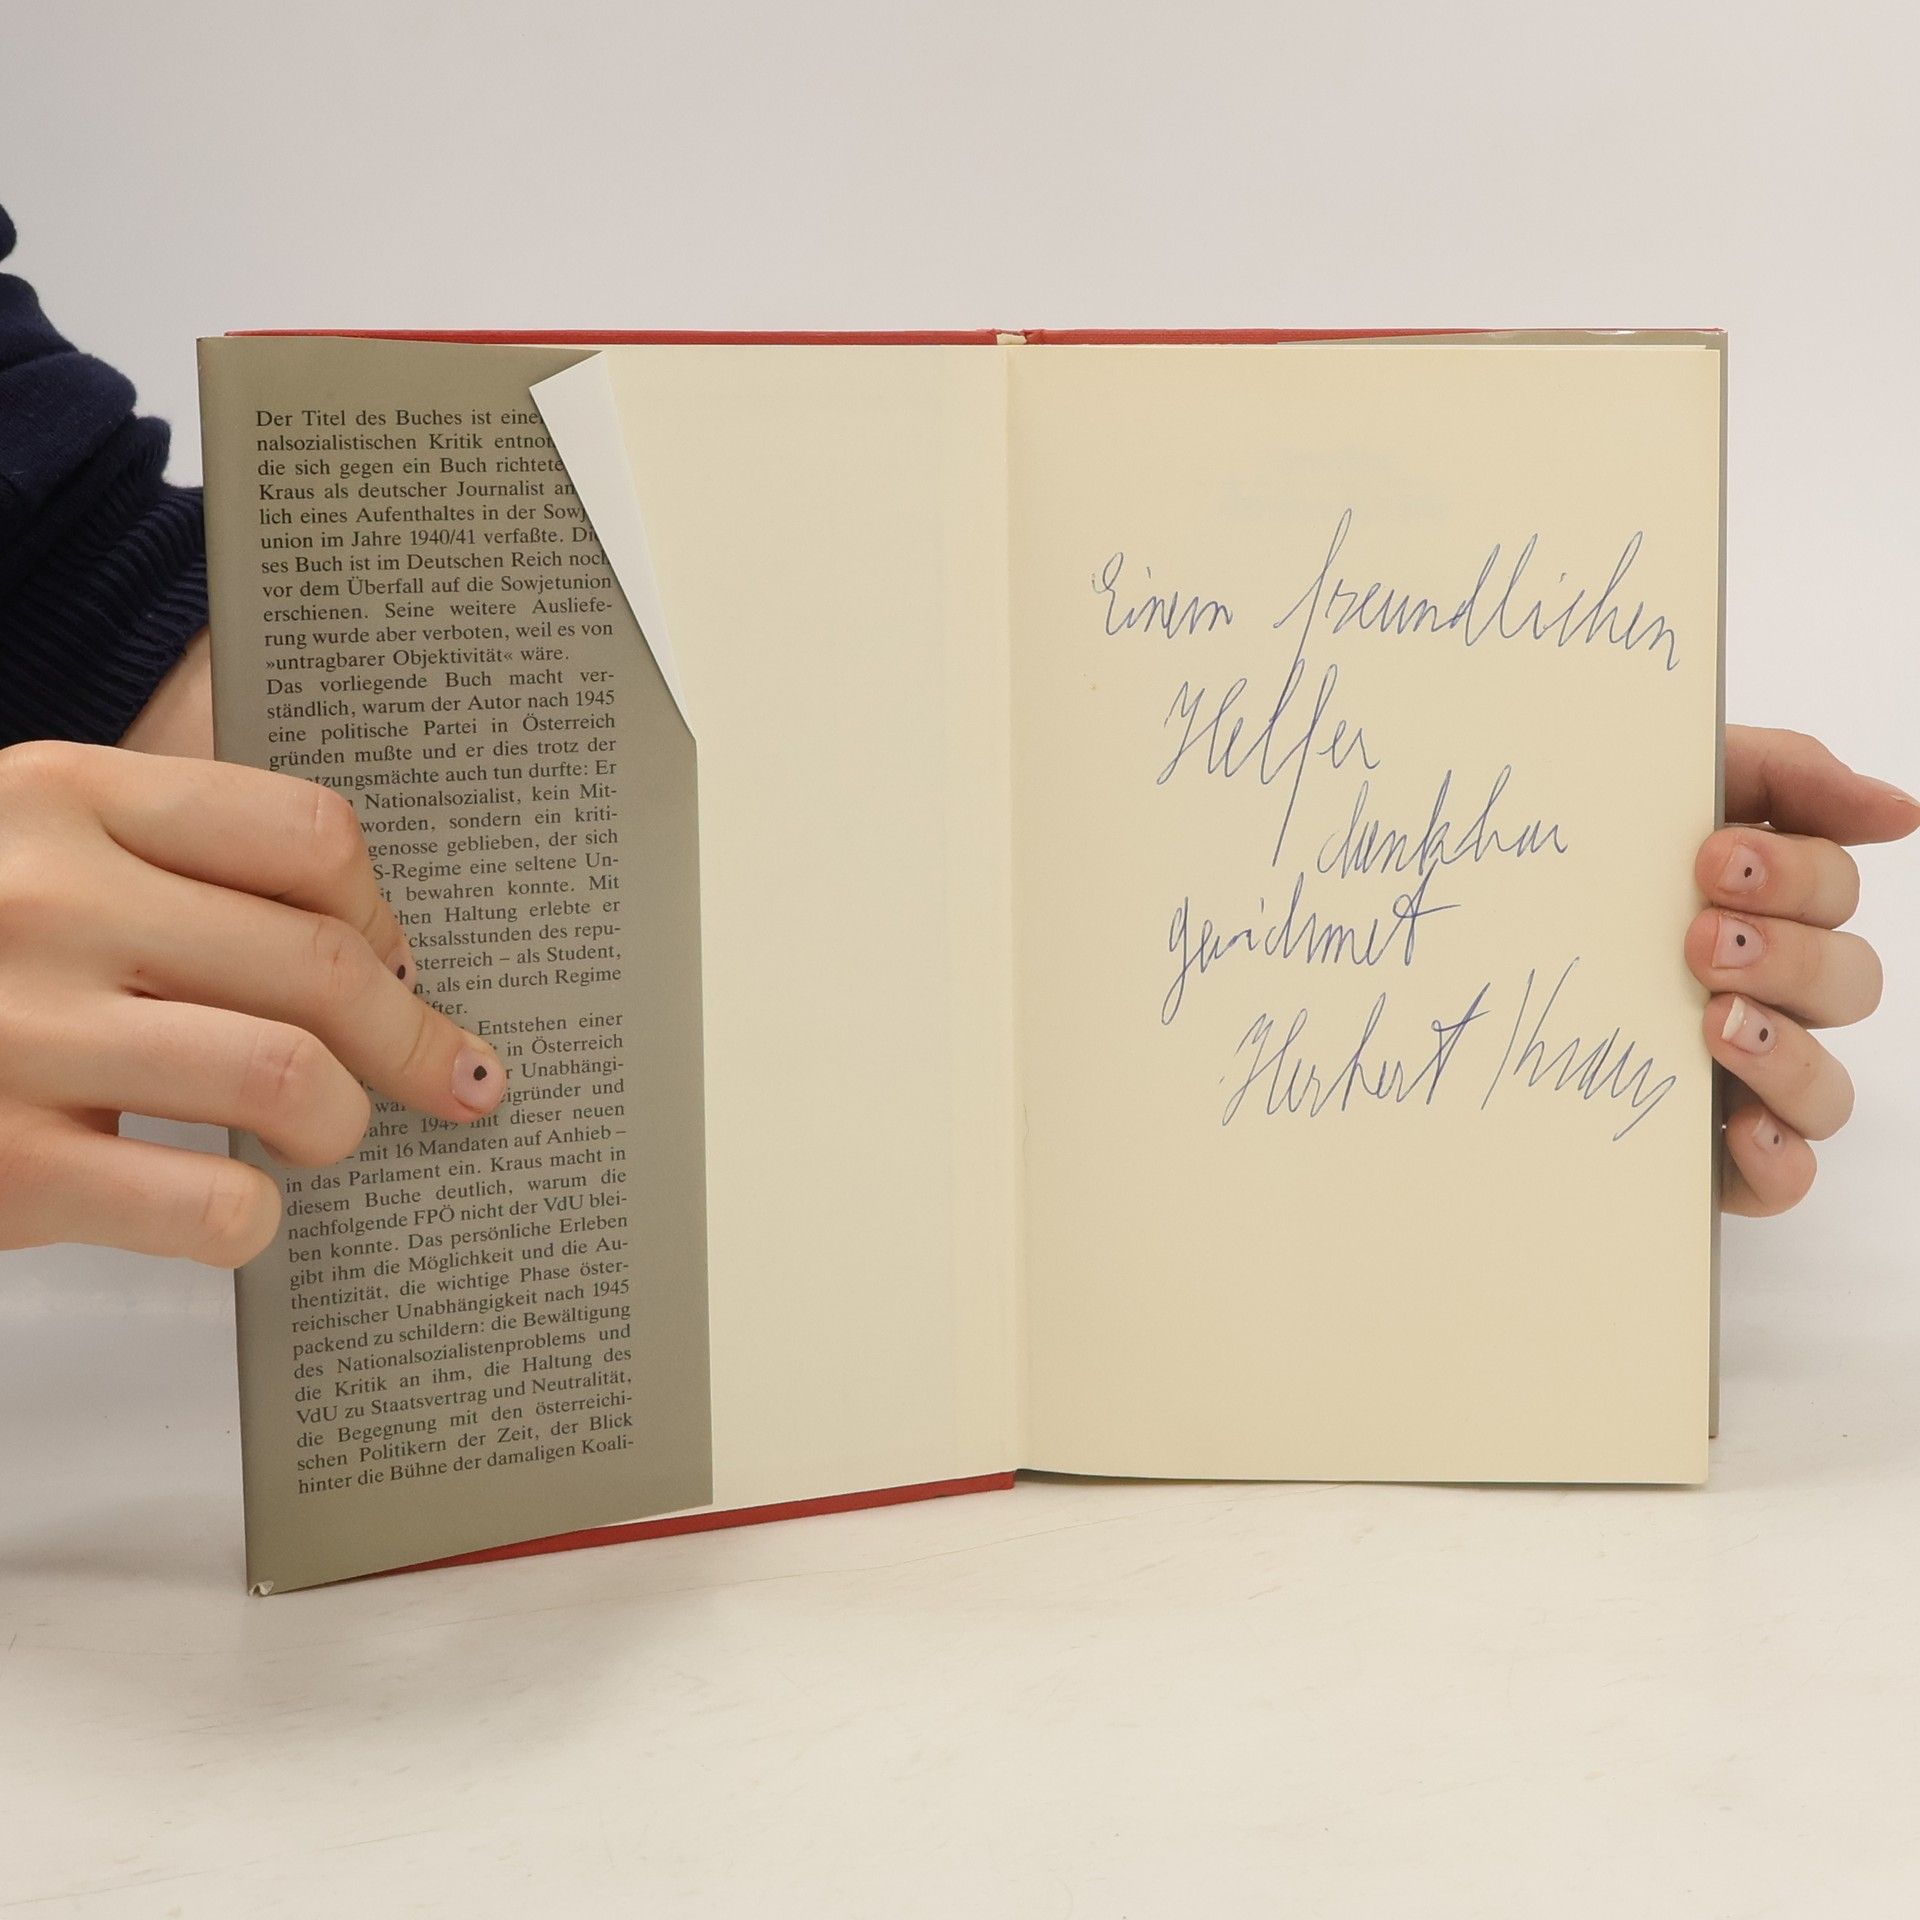 Der Titel des Buches ist eine
nalsozialistischen Kritik
die sich gegen ein Buch richtete
Kraus als deutscher Journalist an
lich eines Aufenthaltes in der
union im Jahre 1940/41 verfaßte. Die
ses Buch ist im Deutschen Reich noch
vor dem Überfall auf die Sowjetunion
erschienen. Seine weitere Ausliefe-
rung wurde aber verboten, weil es von
»untragbarer Objektivität« wäre.
Das vorliegende Buch macht ver-
ständlich, warum der Autor nach 1945
eine politische Partei in Österreich
gründen mußte und er dies trotz der
tzungsmächte auch tun durfte: Er
Nationalsozialist, kein Mit-
worden, sondern ein kriti-
genosse geblieben, der sich
S-Regime eine seltene Un-
it bewahren konnte. Mit
chen Haltung erlebte er
cksalsstunden des repu-
sterreich – als Student,
n, als ein durch Regime
fter.
Entstehen einer
in Österreich
r Unabhängi-
eigründer und
Jahre 1949 mit dieser neuen
– mit 16 Mandaten auf Anhieb –
in das Parlament ein. Kraus macht in
diesem Buche deutlich, warum die
nachfolgende FPÖ nicht der VdU blei-
ben konnte. Das persönliche Erleben
gibt ihm die Möglichkeit und die Au-
thentizität, die wichtige Phase öster-
reichischer Unabhängigkeit nach 1945
packend zu schildern: die Bewältigung
des Nationalsozialistenproblems und
die Kritik an ihm, die Haltung des
VdU zu Staatsvertrag und Neutralität,
die Begegnung mit den österreichi-
schen Politikern der Zeit, der Blick
hinter die Bühne der damaligen Koali-
Einem freundlichen
Helfer
dankbar
gewidmet
Herbert Kraus